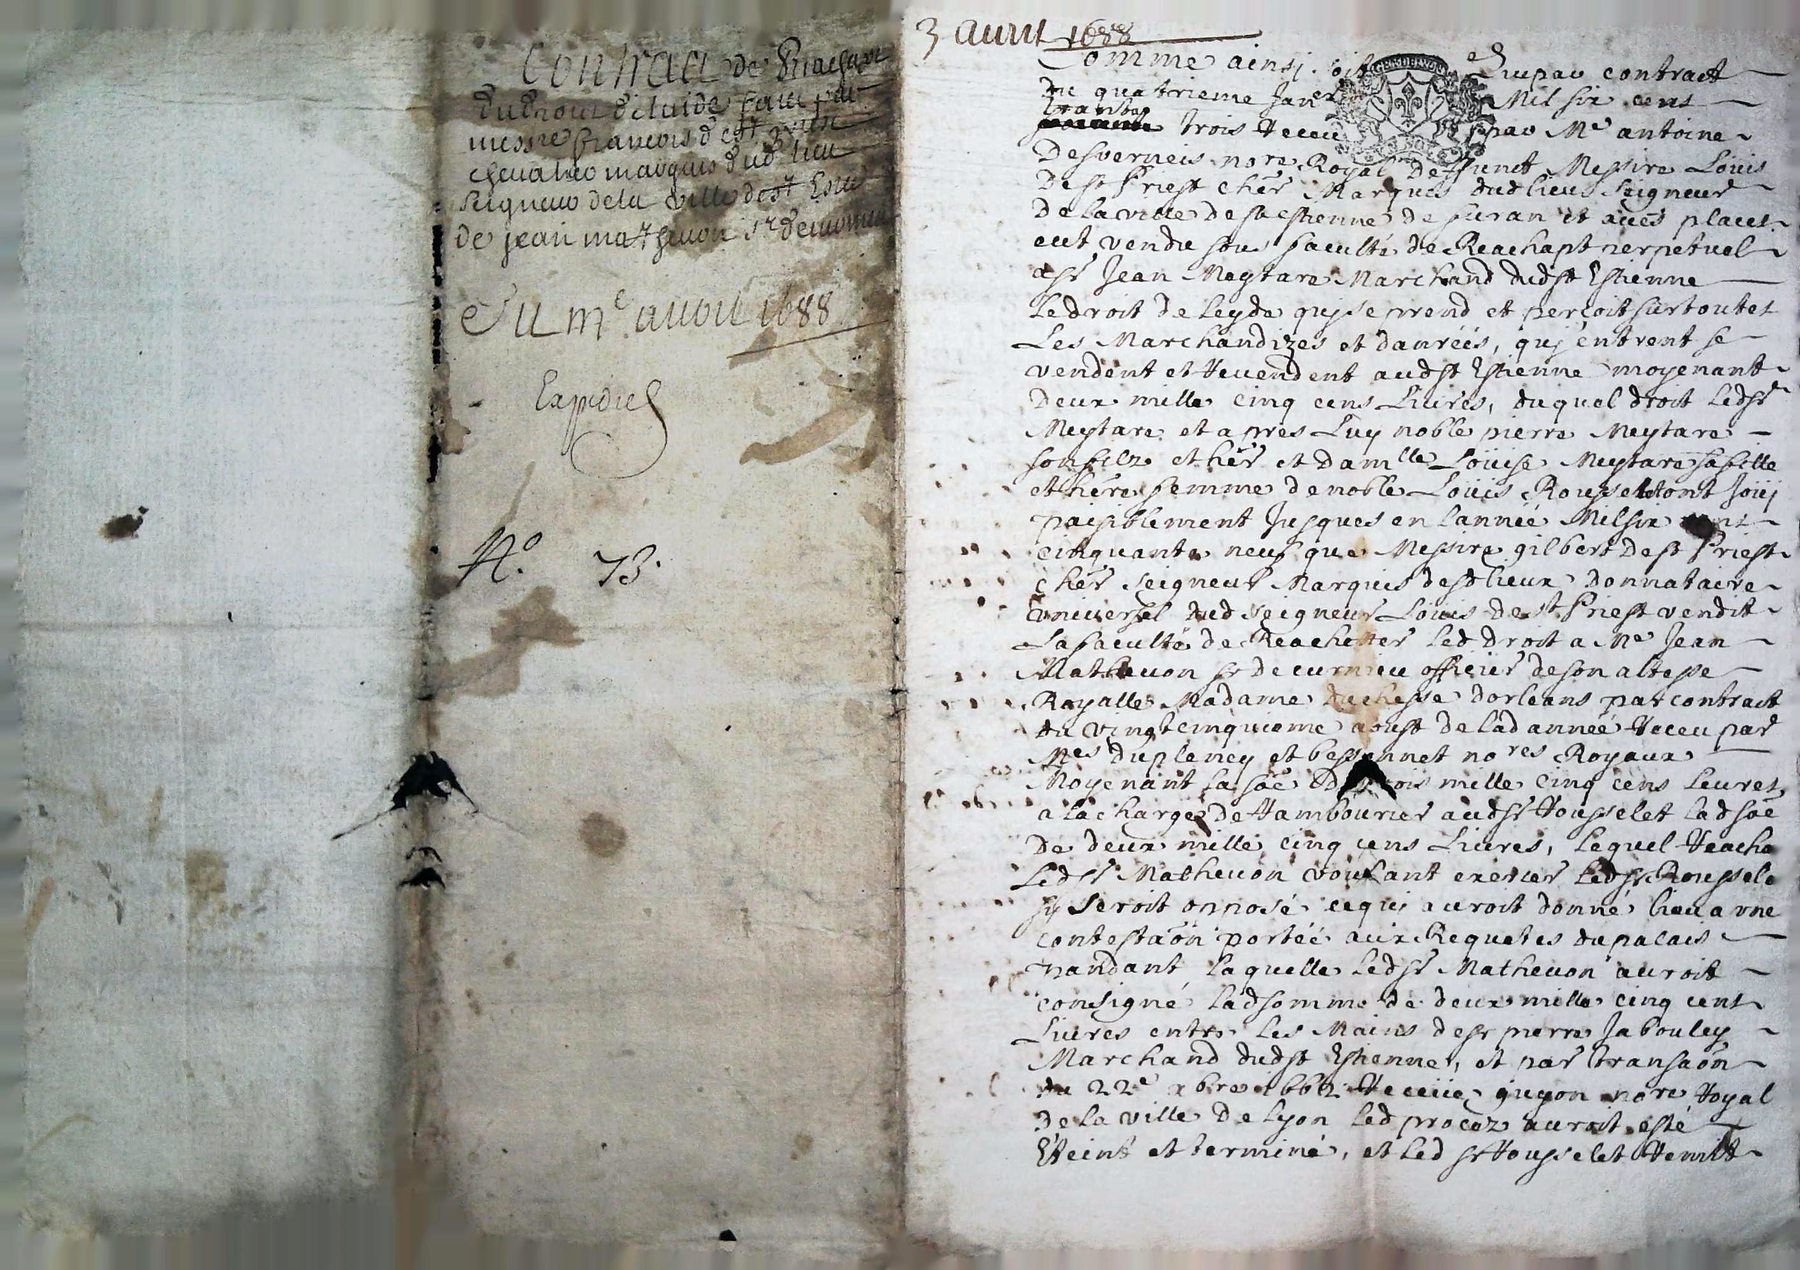 Contract de Reachapt
du droit de leide faict par
messire francois de st priest
chevalier marquis dud lieu
seigneur de la ville de st Estie
de jean mathevon sr de curnieu
Du 3me avril 1688
Expedié
No. 73.
3 avril 1688
Comme ainsi soit que par contract
du quatrieme Janer Mil six cens
trante trois Receu par Me antoine
Desverneis nore Royal deffunct Messire Louis
De st Priest cher Marquis dud lieu Seigneur
De la ville de st estienne de furan et aues places
eut vendu sous faculté de Reachapt perpetuel
a sr Jean Meytare Marchand dud st Estienne
Le droit de Leyde quj se prend et perçoit sur toutes
Les Marchandizes et danréés, quj entrent se
vendent et Revendent aud st Estienne moyenant
Deux mille cinq cens Livres, duquel droit Led sr
Meytare et apres Luy noble pierre Meytare
son filz et her et damlle Loüise Meytare sa fille
et here femme de noble Loüis Rousselet ont Joüj
paisiblement Jusques en lannéé Mil six cent
cinquante neuf que Messire gilbert de st Priest
cher seigneur Marquis desd lieux donnataire
universel dud seigneur Louis de st Priest vendit
La faculté de Reachetter led droit a Me Jean
Mathevon sr de curnieu officier de son altesse
Royalle Madame duchesse dorleans par contract
du vingt cinquieme aoust de lad année Receu par
Mes dupleney et bessonnet nores Royaux
Moyenant la soe De trois mille cinq cens Leures
a la charge de Rambourcer aud sr Rousselet lad soe
De deux mille cinq cens Livres, lequel Reacha
Led sr Mathevon voulant exercer led sr Roussele
sy seroit opposé ce qui auroit donné lieu a une
contestaon portéé aux Requetes du palais
pandant laquelle led sr Mathevon auroit
consigné lad somme de deux mille cinq cent
Livres entre les Mains de sr pierre Jabouley
Marchand dud st Estienne, et par transaon
du 22e xbre 1662 Receüe guyon nore Royal
de la ville de Lyon led procez auroit esté
Eteint et terminé, et led sr Rousselet Remit